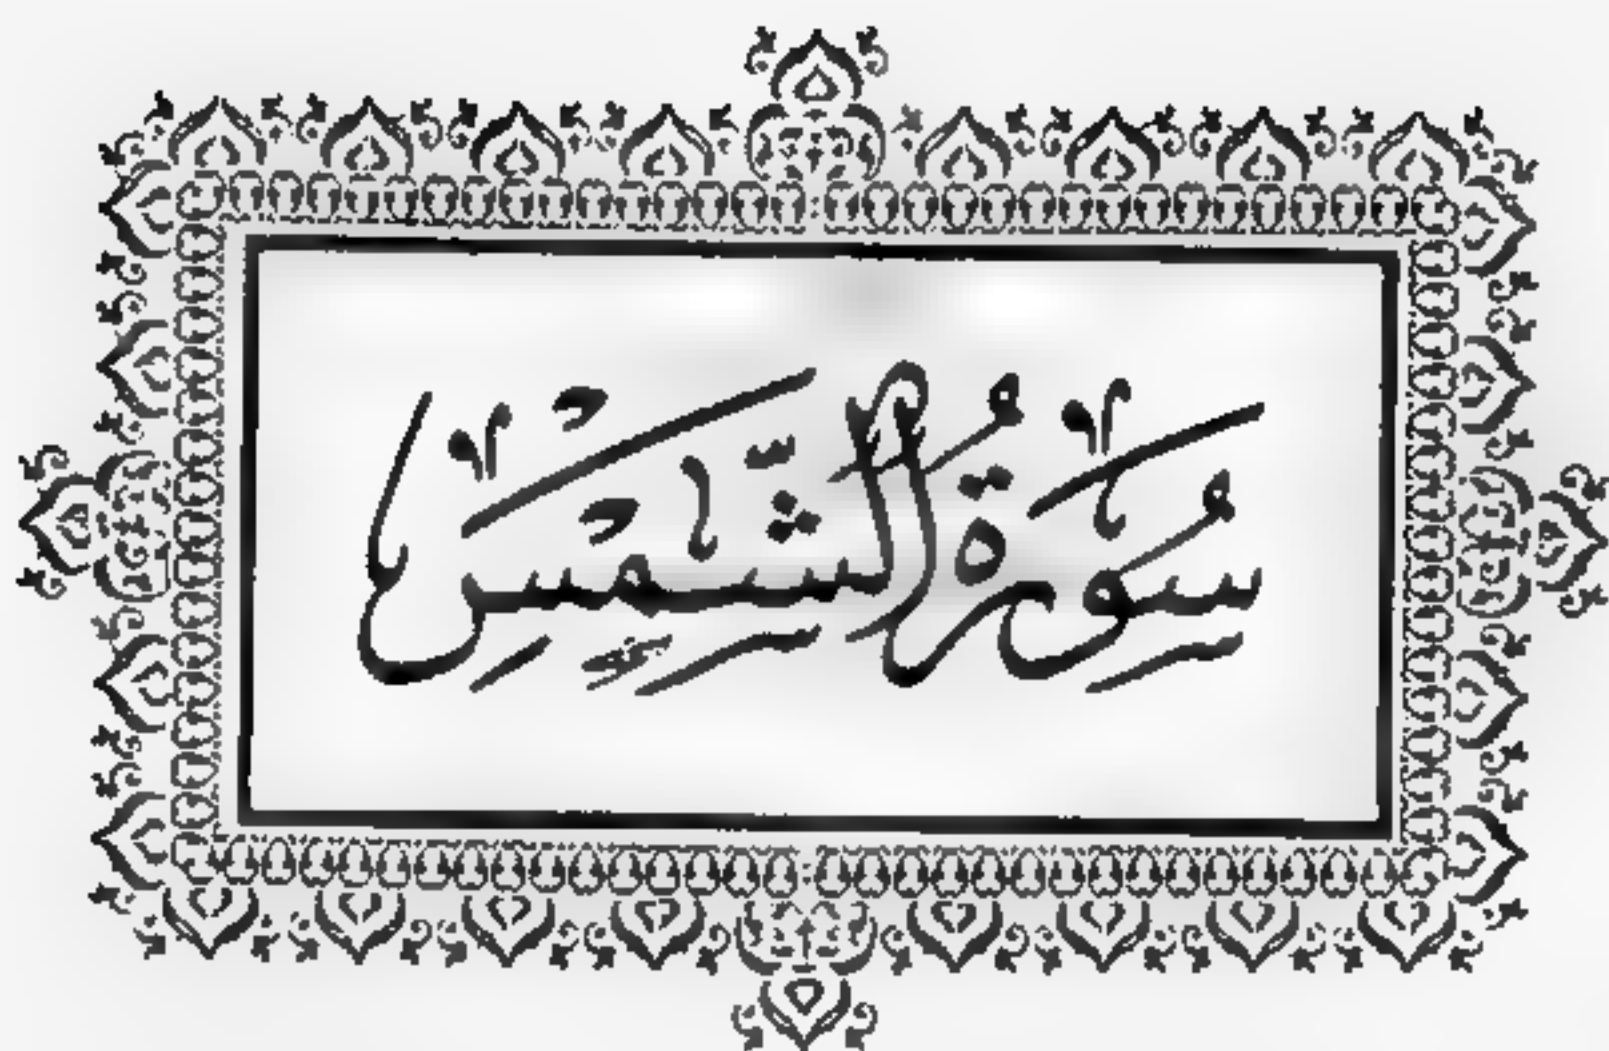 سُورَةُ الشَّمْسِ